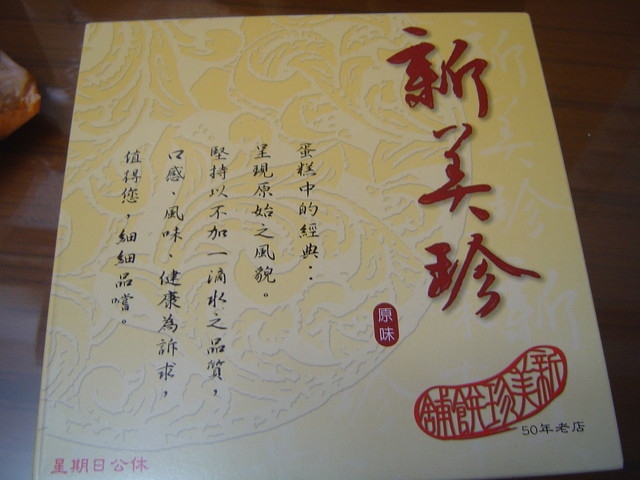 新美珍
蛋糕中的經典：
呈現原始之風貌。
堅持以不加一滴水之品質，
口感、風味、健康為訴求，
值得您，細細品嚐。
原味
新美珍餅舖
50年老店
星期日公休